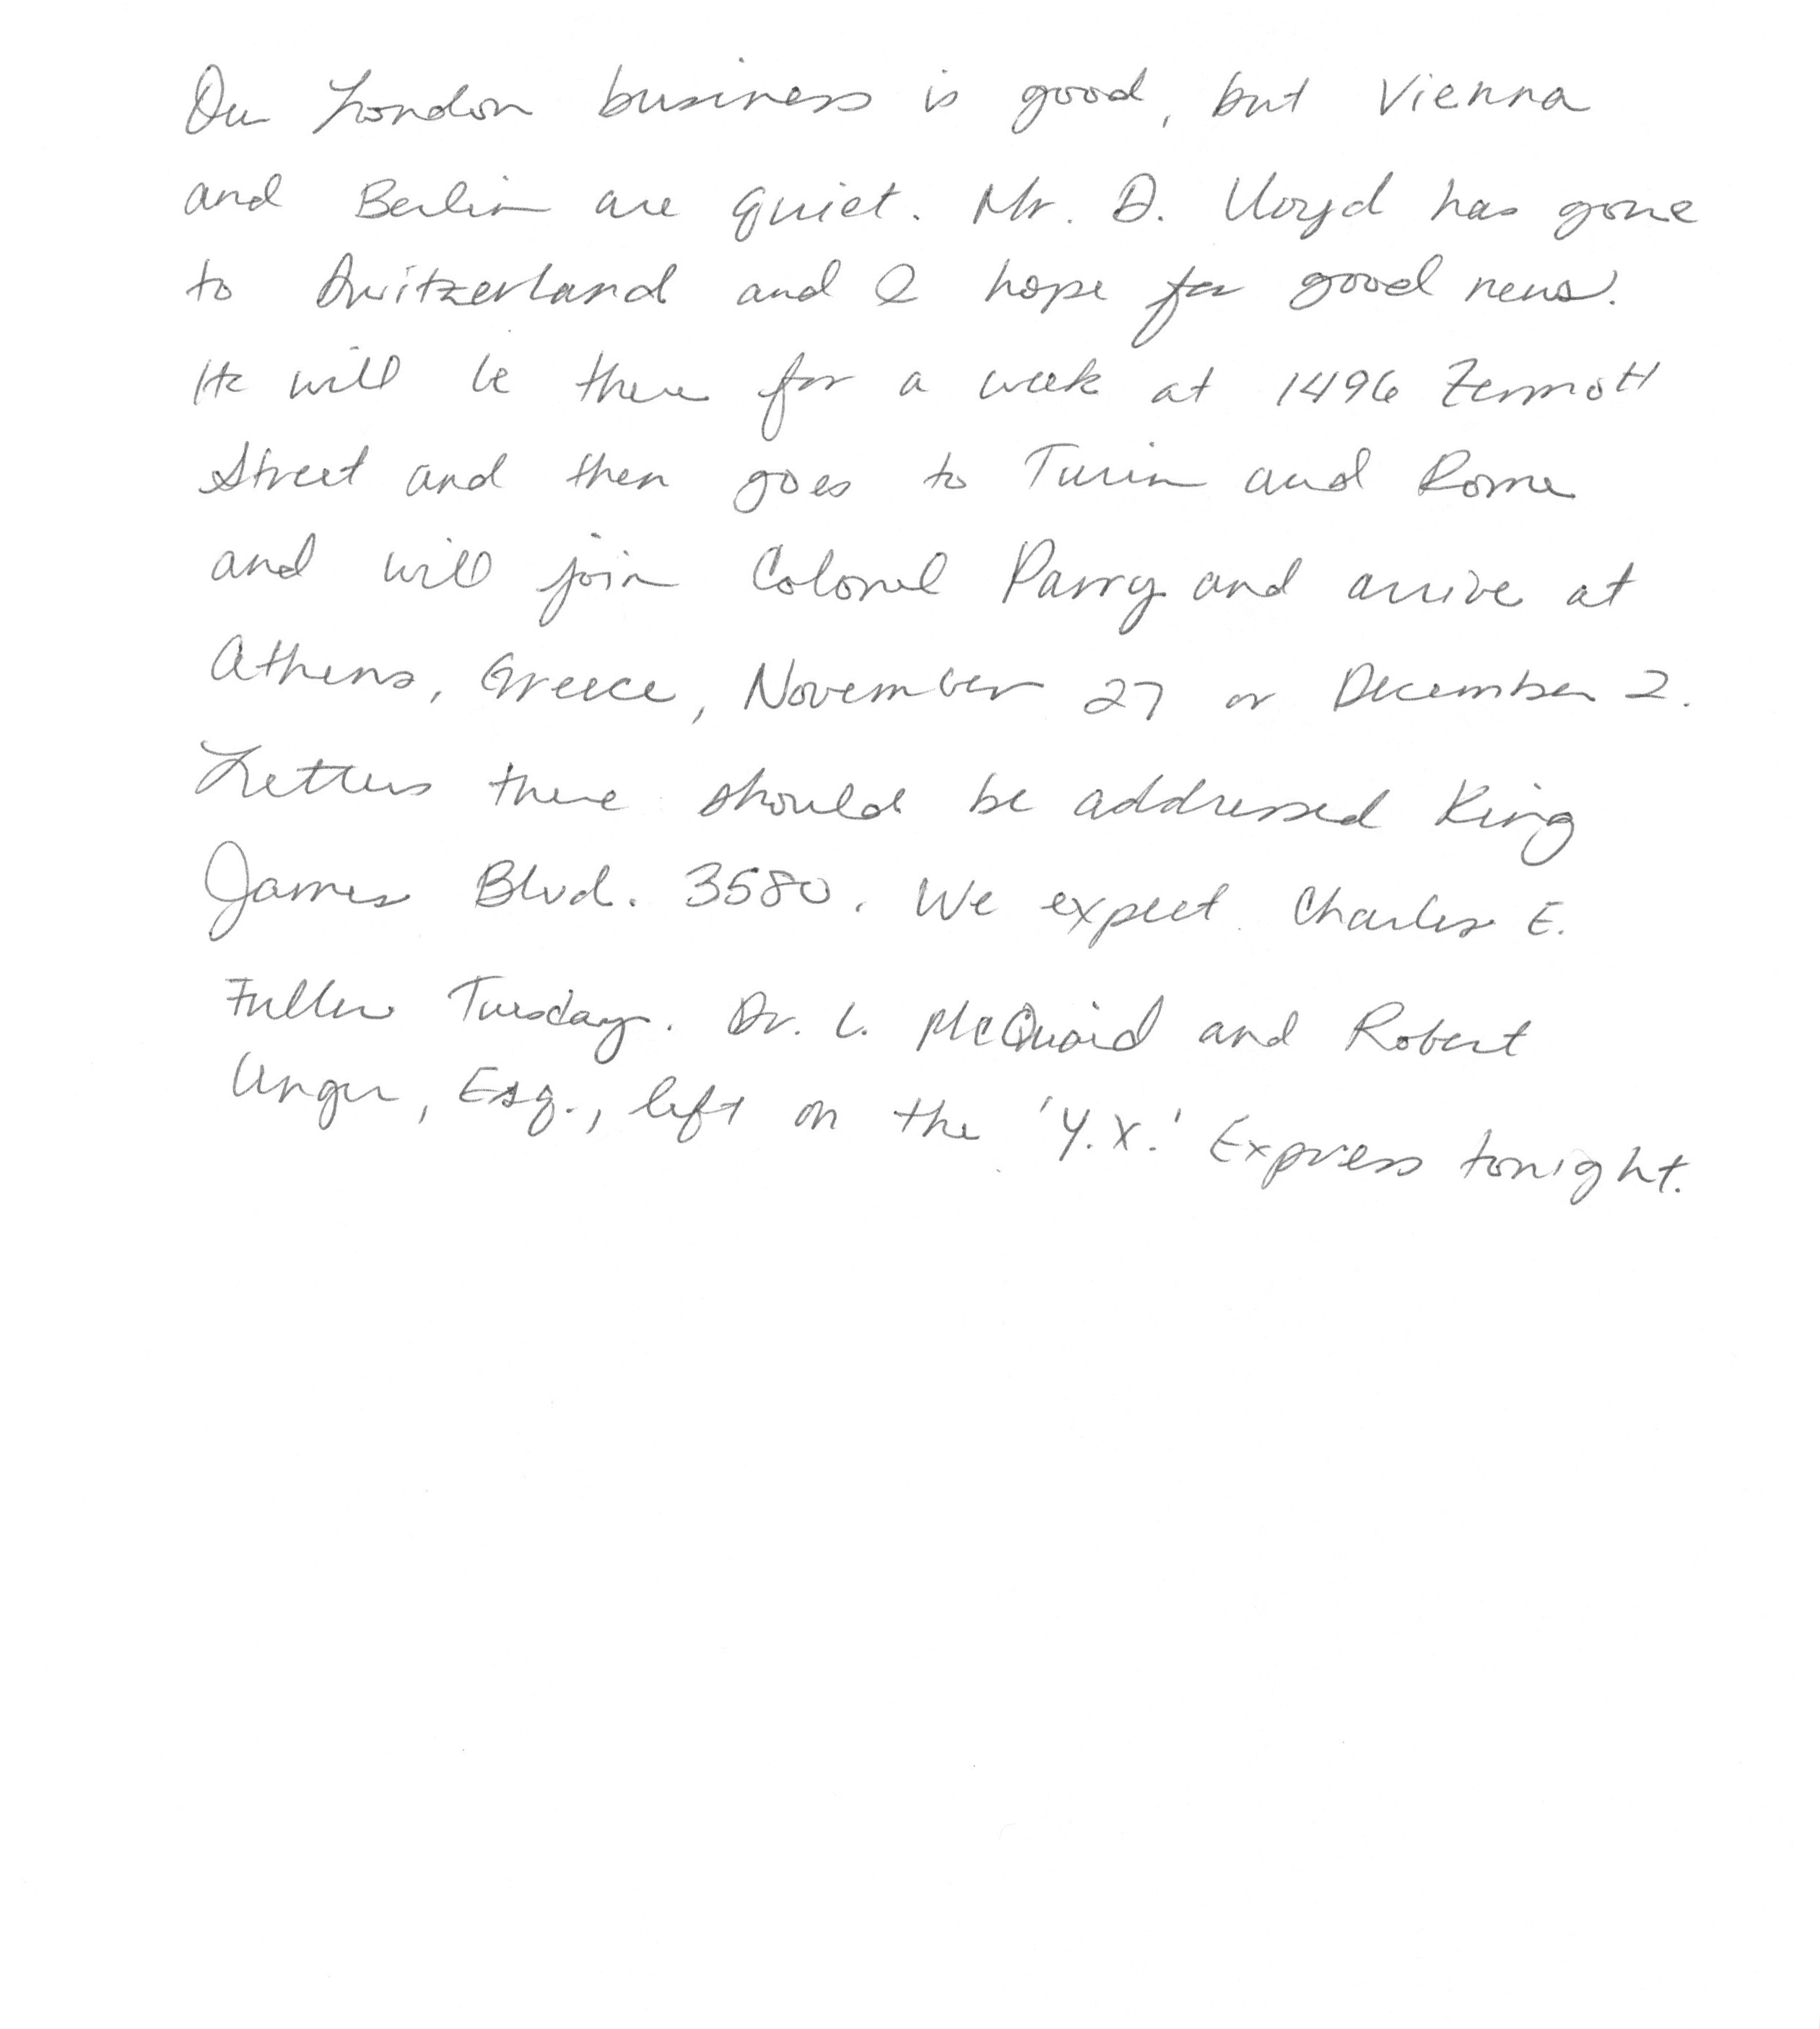 Our London business is good, but Vienna
and Berlin are quiet. Mr. D. Lloyd has gone
to Switzerland and I hope for good news.
He will be there for a week at 1496 Zermott
Street and then goes to Turin and Rome
and will join Colonel Parry and arrive at
Athens, Greece, November 27 or December 2.
Letters there should be addressed King
James Blvd. 3580. We expect Charles E.
Fuller Tuesday. Dr. L. McQuaid and Robert
Unger, Esq., left on the 'Y.X.' Express tonight.